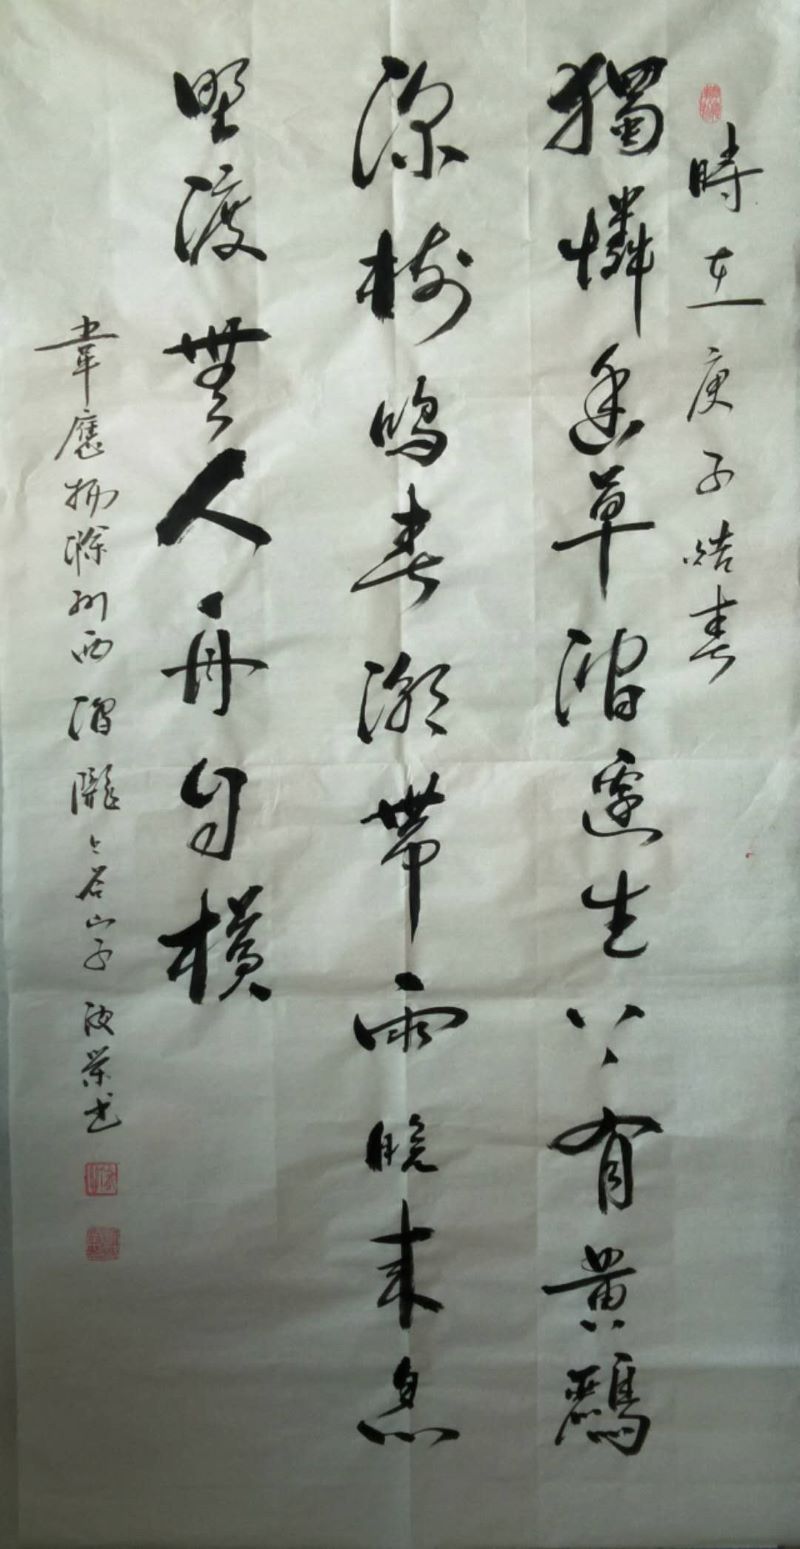 時在庚子皓春
獨憐幽草澗邊生上有黃鸝
深樹鳴春潮帶雨晚來急
野渡無人舟自横
韋應物滁州西澗隴上谷山子波榮书